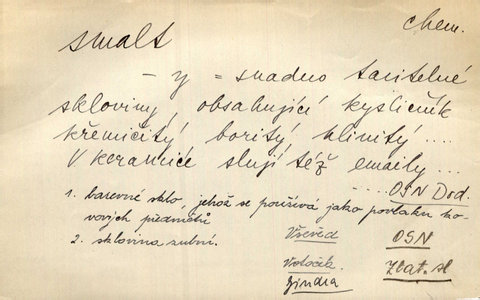 chem.
smalt
– y = snadno tavitelné
skloviny, obsahující kysličník
křemičitý, boritý, hlinitý ....
V keramice slují též emaily ....
..... OSN Dod.
1. barevné sklo, jehož se používá jako povlaku ko-
vových předmětů
2. sklovina zubní.
Vševěd OSN
Votoček. Zlat. sl
Jindra